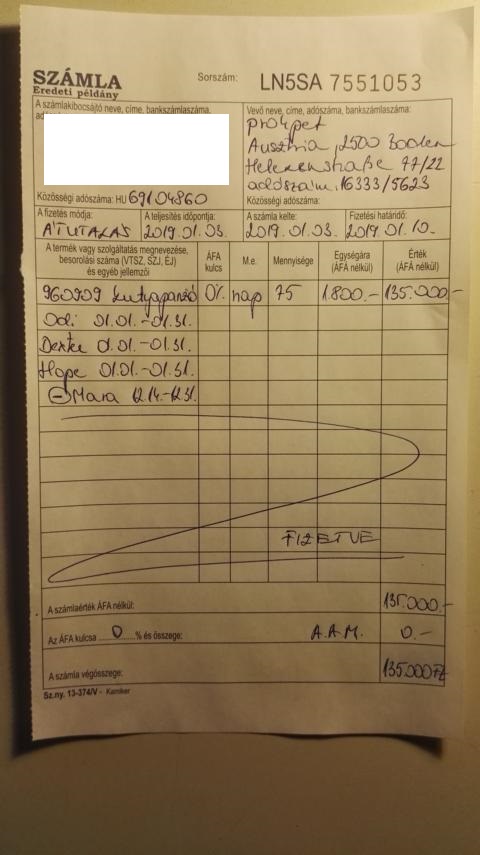 SZÁMLA
Eredeti példány
Sorszám: LN5SA 7551053
A számlakibocsájtó neve, címe, bankszámlaszáma,
Közösségi adószáma: HU 69104860
Vevő neve, címe, adószáma, bankszámlaszáma:
pro4pet
Ausztria, 2500 Baden
Helenenstraße 47/22
adószám: 16333/5623
Közösségi adószáma:
A fizetés módja: A teljesítés időpontja: A számla kelte: Fizetési határidő:
ÁTUTALÁS 2019.01.03. 2019.01.03. 2019.01.10.
A termék vagy szolgáltatás megnevezése, besorolási száma (VTSZ, SZJ, ÉJ) és egyéb jellemzői
ÁFA kulcs
M.e.
Mennyisége
Egységára (ÁFA nélkül)
Érték (ÁFA nélkül)
960909 kutyapanzió 0% nap 75 1.800.- 135.000.-
Odi 01.01.-01.31.
Dexter 01.01.-01.31.
Hope 01.01.-01.31.
⊖ Mara 12.14.-12.31.
FIZETVE
A számlaérték ÁFA nélkül: 135.000.-
Az ÁFA kulcsa 0 % és összege: A.A.M. 0.-
A számla végösszege: 135.000 Ft
Sz.ny. 13-374/V - Kamiker